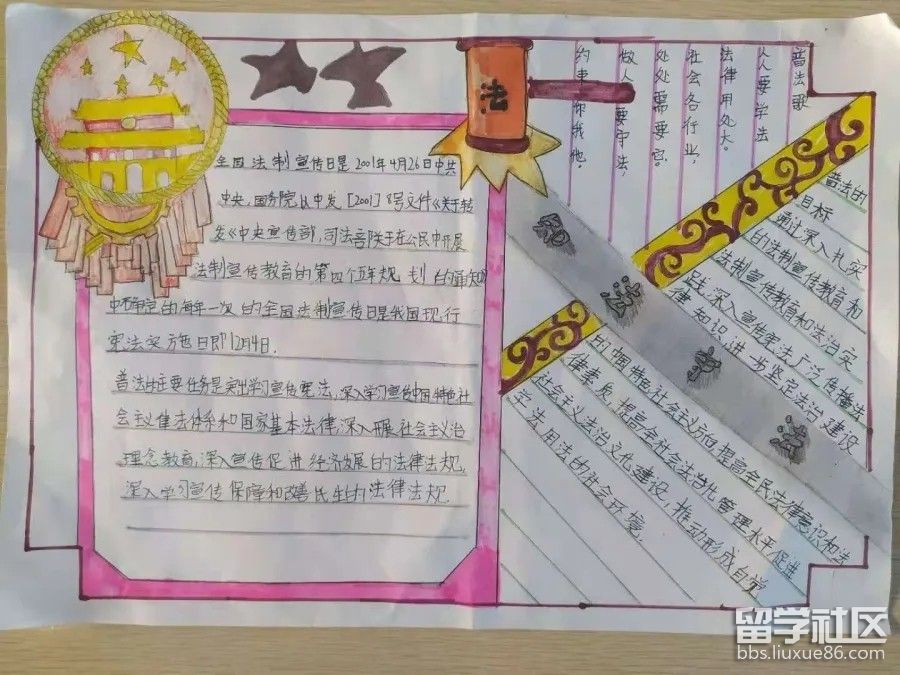 全国法制宣传日是2001年4月26日中共
中央,国务院以中发[2001]8号文件《关于转
发《中央宣传部,司法部关于在公民中开展
法制宣传教育的第四个五年规划的通知》
中确定的每年一次的全国法制宣传日是我国现行
宪法实施日即12月4日.
普法的主要任务是突出学习宣传宪法,深入学习宣传中国特色社
会主义律法体系和国家基本法律,深入开展社会主义治
理念教育,深入宣传促进经济发展的法律法规,
深入学习宣传保障和改善民生的法律法规.
法
普法歌
人人要学法
法律用处大。
社会各行业,
处处需要它。
做人要守法,
约束你我他。
知法守法
普法的
目标
通过深入扎实
的法制宣传教育和
法制宣传教育和法治实
践,深入宣传宪法,广泛传播法
律知识,进一步坚定法治建设
的中国特色社会主义方向,提高全民法律意识和法
律素质,提高全社会法治化管理水平,促进
社会主义法治文化建设,推动形成自觉
学法用法的社会环境.
留学社区
bbs.liuxue86.com